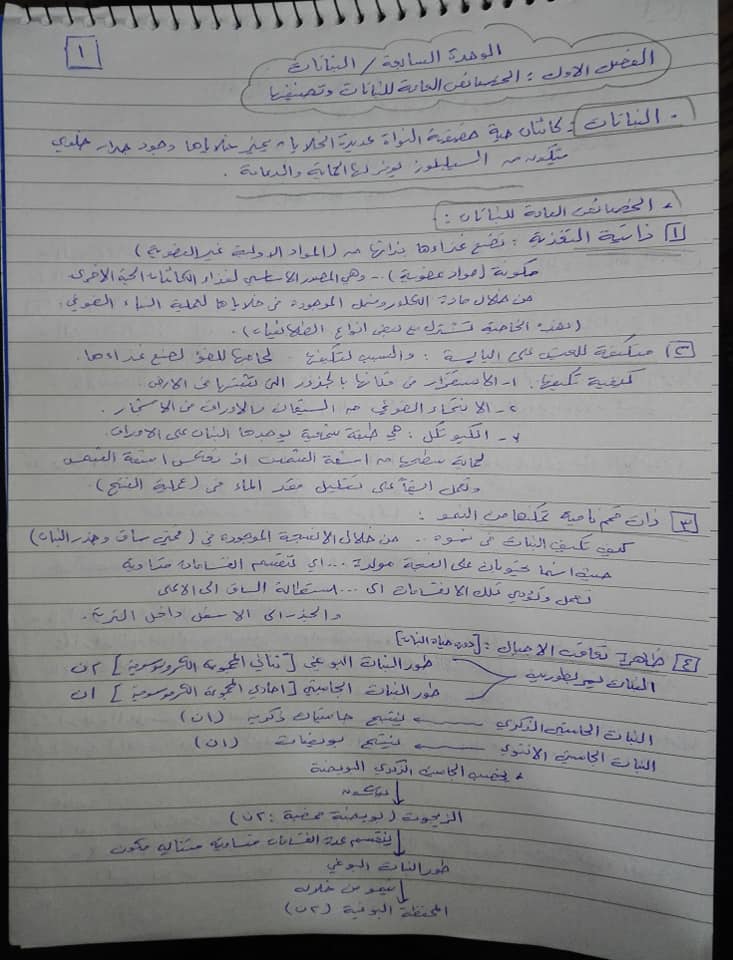 ١
الوحدة السابعة / النباتات
الفصل الاول : الخصائص العامة للنباتات وتصنيفها
- النباتات : كائنات حية حقيقية النواة عديدة الخلايا يميز خلاياها وجود جدار خلوي
متكون من السيليلوز يوفر لها الحماية والدعامة .
* الخصائص العامة للنباتات :
١ ذاتية التغذية : تصنع غذاءها بذاتها من (المواد الاولية غير العضوية)
مكونة (مواد عضوية) .. وهي المصدر الاساسي لغذاء الكائنات الحية الأخرى
من خلال مادة الكلوروفيل الموجودة في خلاياها لعملية البناء الضوئي .
(وهذه الخاصية تشترك مع بعض انواع الطلائعيات) .
٢ متكيفة للعيش على اليابسة : والسبب لتكيفها . لحاجتها للضوء لصنع غذاءها .
كيفية تكيفها . ١- الاستقرار في مكانها بالجذور التي تثبتها في الارض
٢- الانتحاء الضوئي من السيقان والاوراق في الاشجار .
٣- الكيوتكل : هي طبقة شمعية يوجدها النبات على الاوراق
لحماية سطحها من اشعة الشمس اذ تعكس اشعة الشمس
وتعمل ايضاً على تقليل فقد الماء في (عملية النتح) .
٣ ذات قمم نامية تمكنها من النمو :
كيف تكيف النبات في نموه .. من خلال الانسجة الموجودة في (قمتي ساق وجذر النبات)
حيث انهما يحتويان على انسجة مولدة ... اي تنقسم انقسامات متساوية
تعمل وتؤدي تلك الانقسامات اى ... استطالة الساق الى الاعلى
والجذر الى الاسفل داخل التربة .
٤ ظاهرة تعاقب الاجيال : [دورة حياة النبات]
النبات يمر بطورين
طور النبات البوغي [ثنائي المجموعة الكروموسومية] ٢ن
طور النبات الجاميتي [احادي المجموعة الكروموسومية] ١ن
النبات الجاميتي الذكري ينتج جاميتات ذكرية (١ن)
النبات الجاميتي الانثوي ينتج بويضات (١ن)
* يخصب الجاميت الذكري البويضة
الزيجوت (بويضة مخصبة : ٢ن)
ينقسم عدة انقسامات متساوية متتالية مكون
طور النبات البوغي
ينمو من خلاله
المحفظة البوغية (٢ن)